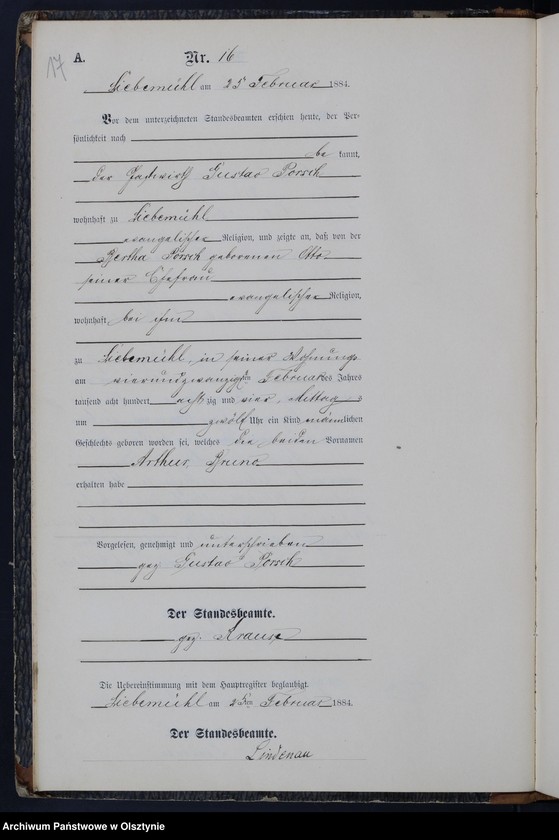 17
A.
Nr. 16
Liebemühl am 25 Februar 1884.
Vor dem unterzeichneten Standesbeamten erschien heute, der Per-
sönlichkeit nach
be kannt,
der Gustav Porsch
wohnhaft zu Liebemühl
evangelischer Religion, und zeigte an, daß von der
Bertha Porsch geborenen Otto
seiner Ehefrau
evangelischer Religion,
wohnhaft bei ihm
zu Liebemühl in seiner Wohnung
am vierundzwanzigsten Februar des Jahres
tausend acht hundert achtzig und vier Mittag s
um zwölf Uhr ein Kind männlichen
Geschlechts geboren worden sei, welches die beiden Vornamen
Arthur, Bruno
erhalten habe
Vorgelesen, genehmigt und unterschrieben
gez Gustav Porsch
Der Standesbeamte.
gez. Krause
Die Uebereinstimmung mit dem Hauptregister beglaubigt.
Liebemühl am Februar 1884.
Der Standesbeamte.
Lindenau
Archiwum Państwowe w Olsztynie